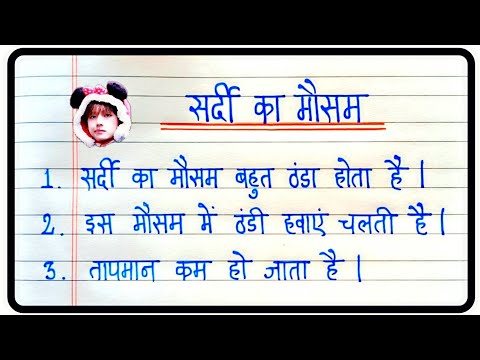 सर्दी का मौसम
1. सर्दी का मौसम बहुत ठंडा होता है |
2. इस मौसम में ठंडी हवाएं चलती है |
3. तापमान कम हो जाता है |